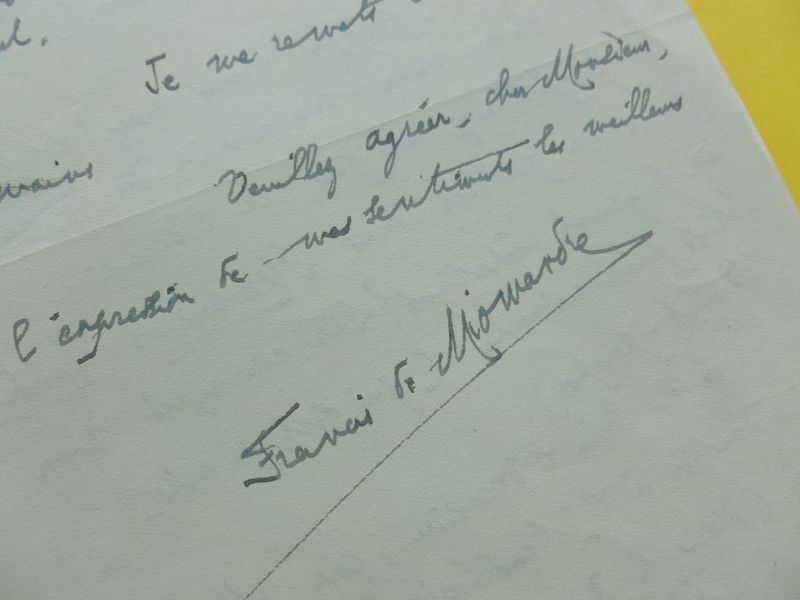 Je me remets
Veuillez agréer, cher Monsieur,
l'expression de mes sentiments les meilleurs
Francis de Miomandre